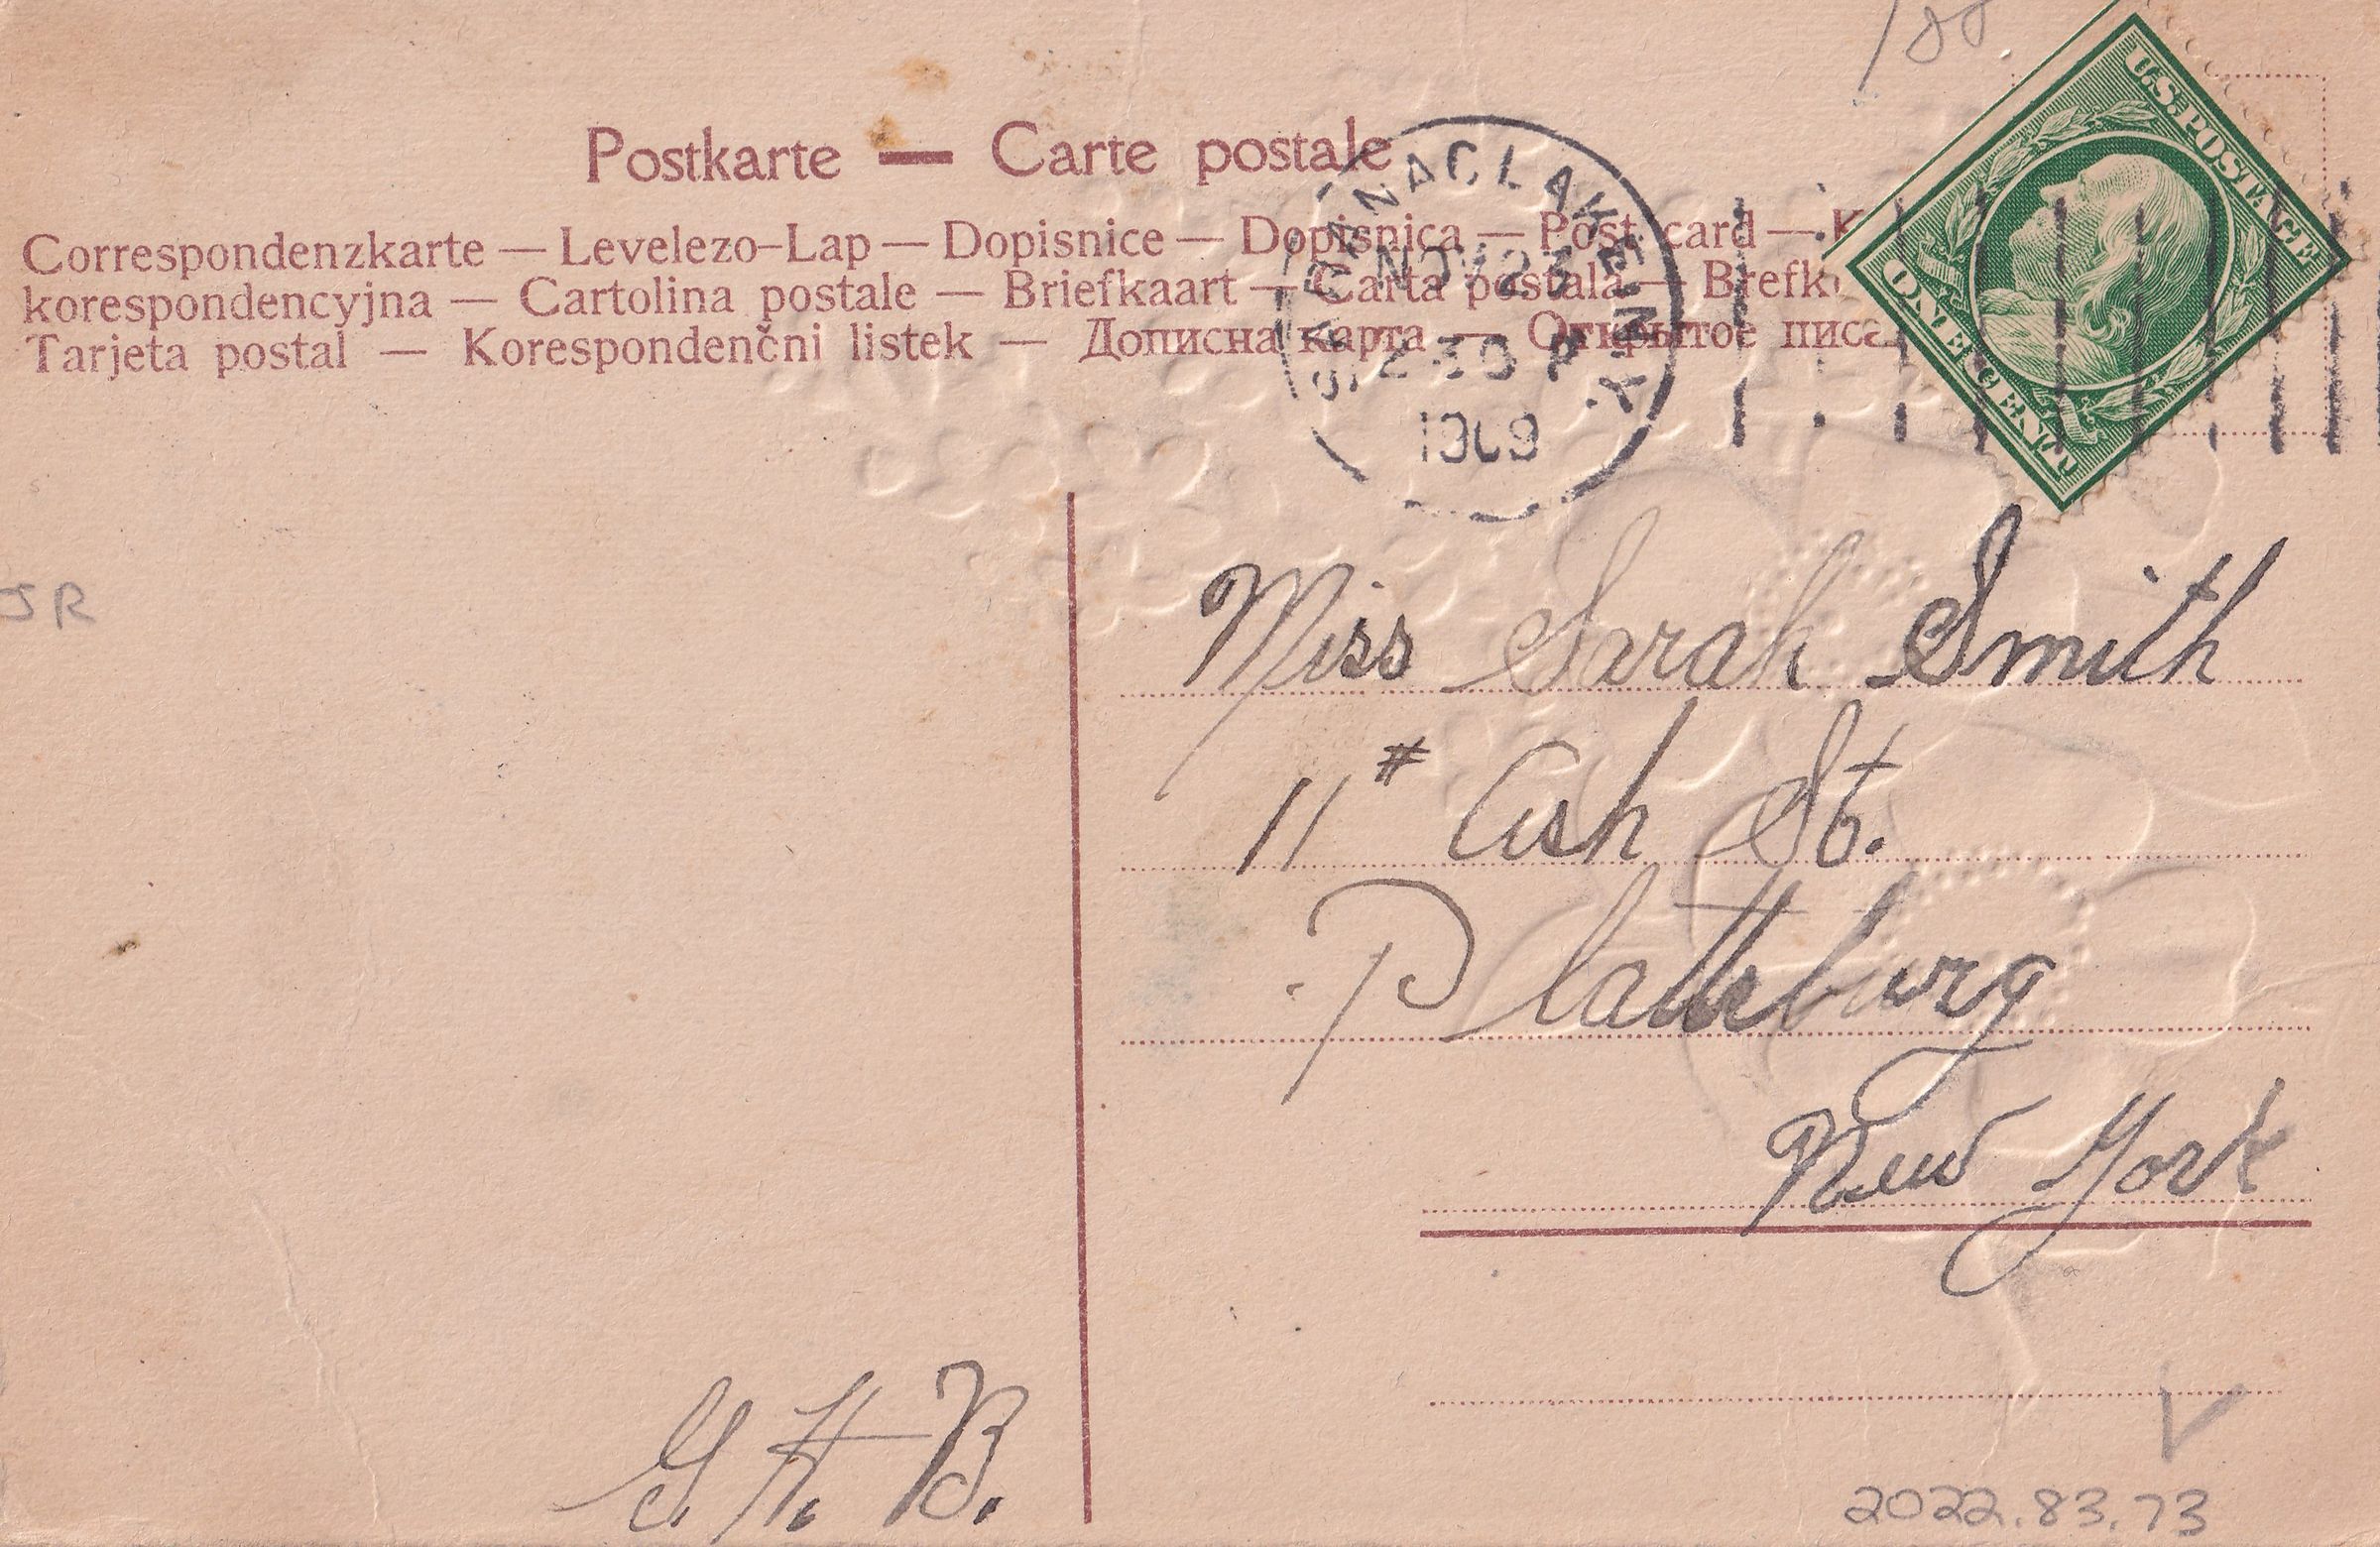 188
U.S. POSTAGE
ONE CENT
Postkarte — Carte postale
Correspondenzkarte — Levelezo-Lap — Dopisnice — Dopisnica — Post card — K
korespondencyjna — Cartolina postale — Briefkaart — Carta postala — Brefk
Tarjeta postal — Korespondenčni listek — Дописна карта — Открытое писа
SARANAC LAKE N.Y.
NOV 23
2 30 P
1909
JR
Miss Sarah Smith
11# Ash St.
Plattsburg
New York
G. H. B.
2022.83.73